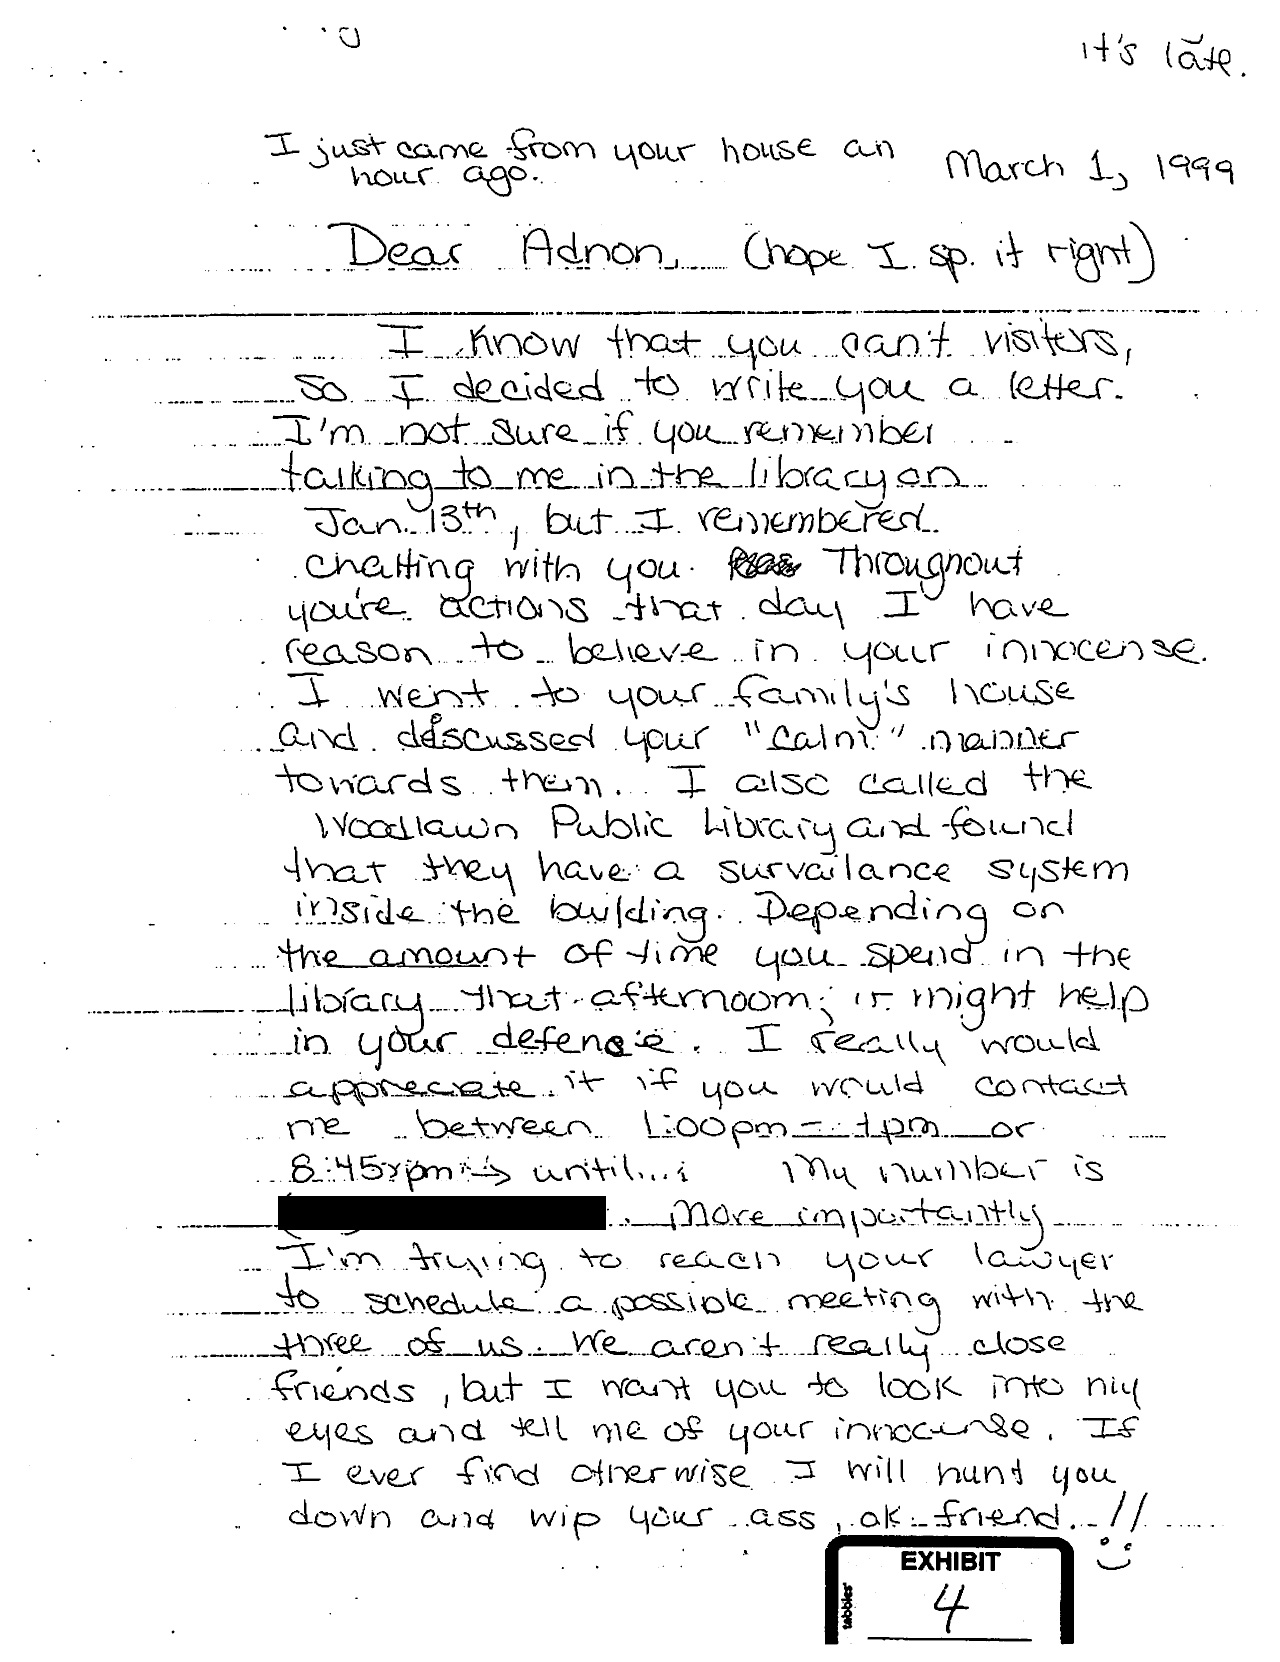 it's late.
I just came from your house an
hour ago.
March 1, 1999
Dear Adnon, (hope I sp. it right)
I know that you can't visitors,
so I decided to write you a letter.
I'm not sure if you remember
talking to me in the library on
Jan. 13th, but I remembered
chatting with you. Throughout
you're actions that day I have
reason to believe in your innocense.
I went to your family's house
and discussed your "calm" manner
towards them. I also called the
Woodlawn Public Library and found
that they have a survailance system
inside the building. Depending on
the amount of time you spend in the
library that afternoom, it might help
in your defense. I really would
appreciate it if you would contact
me between 1:00pm - 4pm or
8:45pm → until... My number is
. More importantly
I'm trying to reach your lawyer
to schedule a possible meeting with the
three of us. We aren't really close
friends, but I want you to look into my
eyes and tell me of your innocense. If
I ever find otherwise I will hunt you
down and wip your ass, ok friend. !!
EXHIBIT
4
tabbies